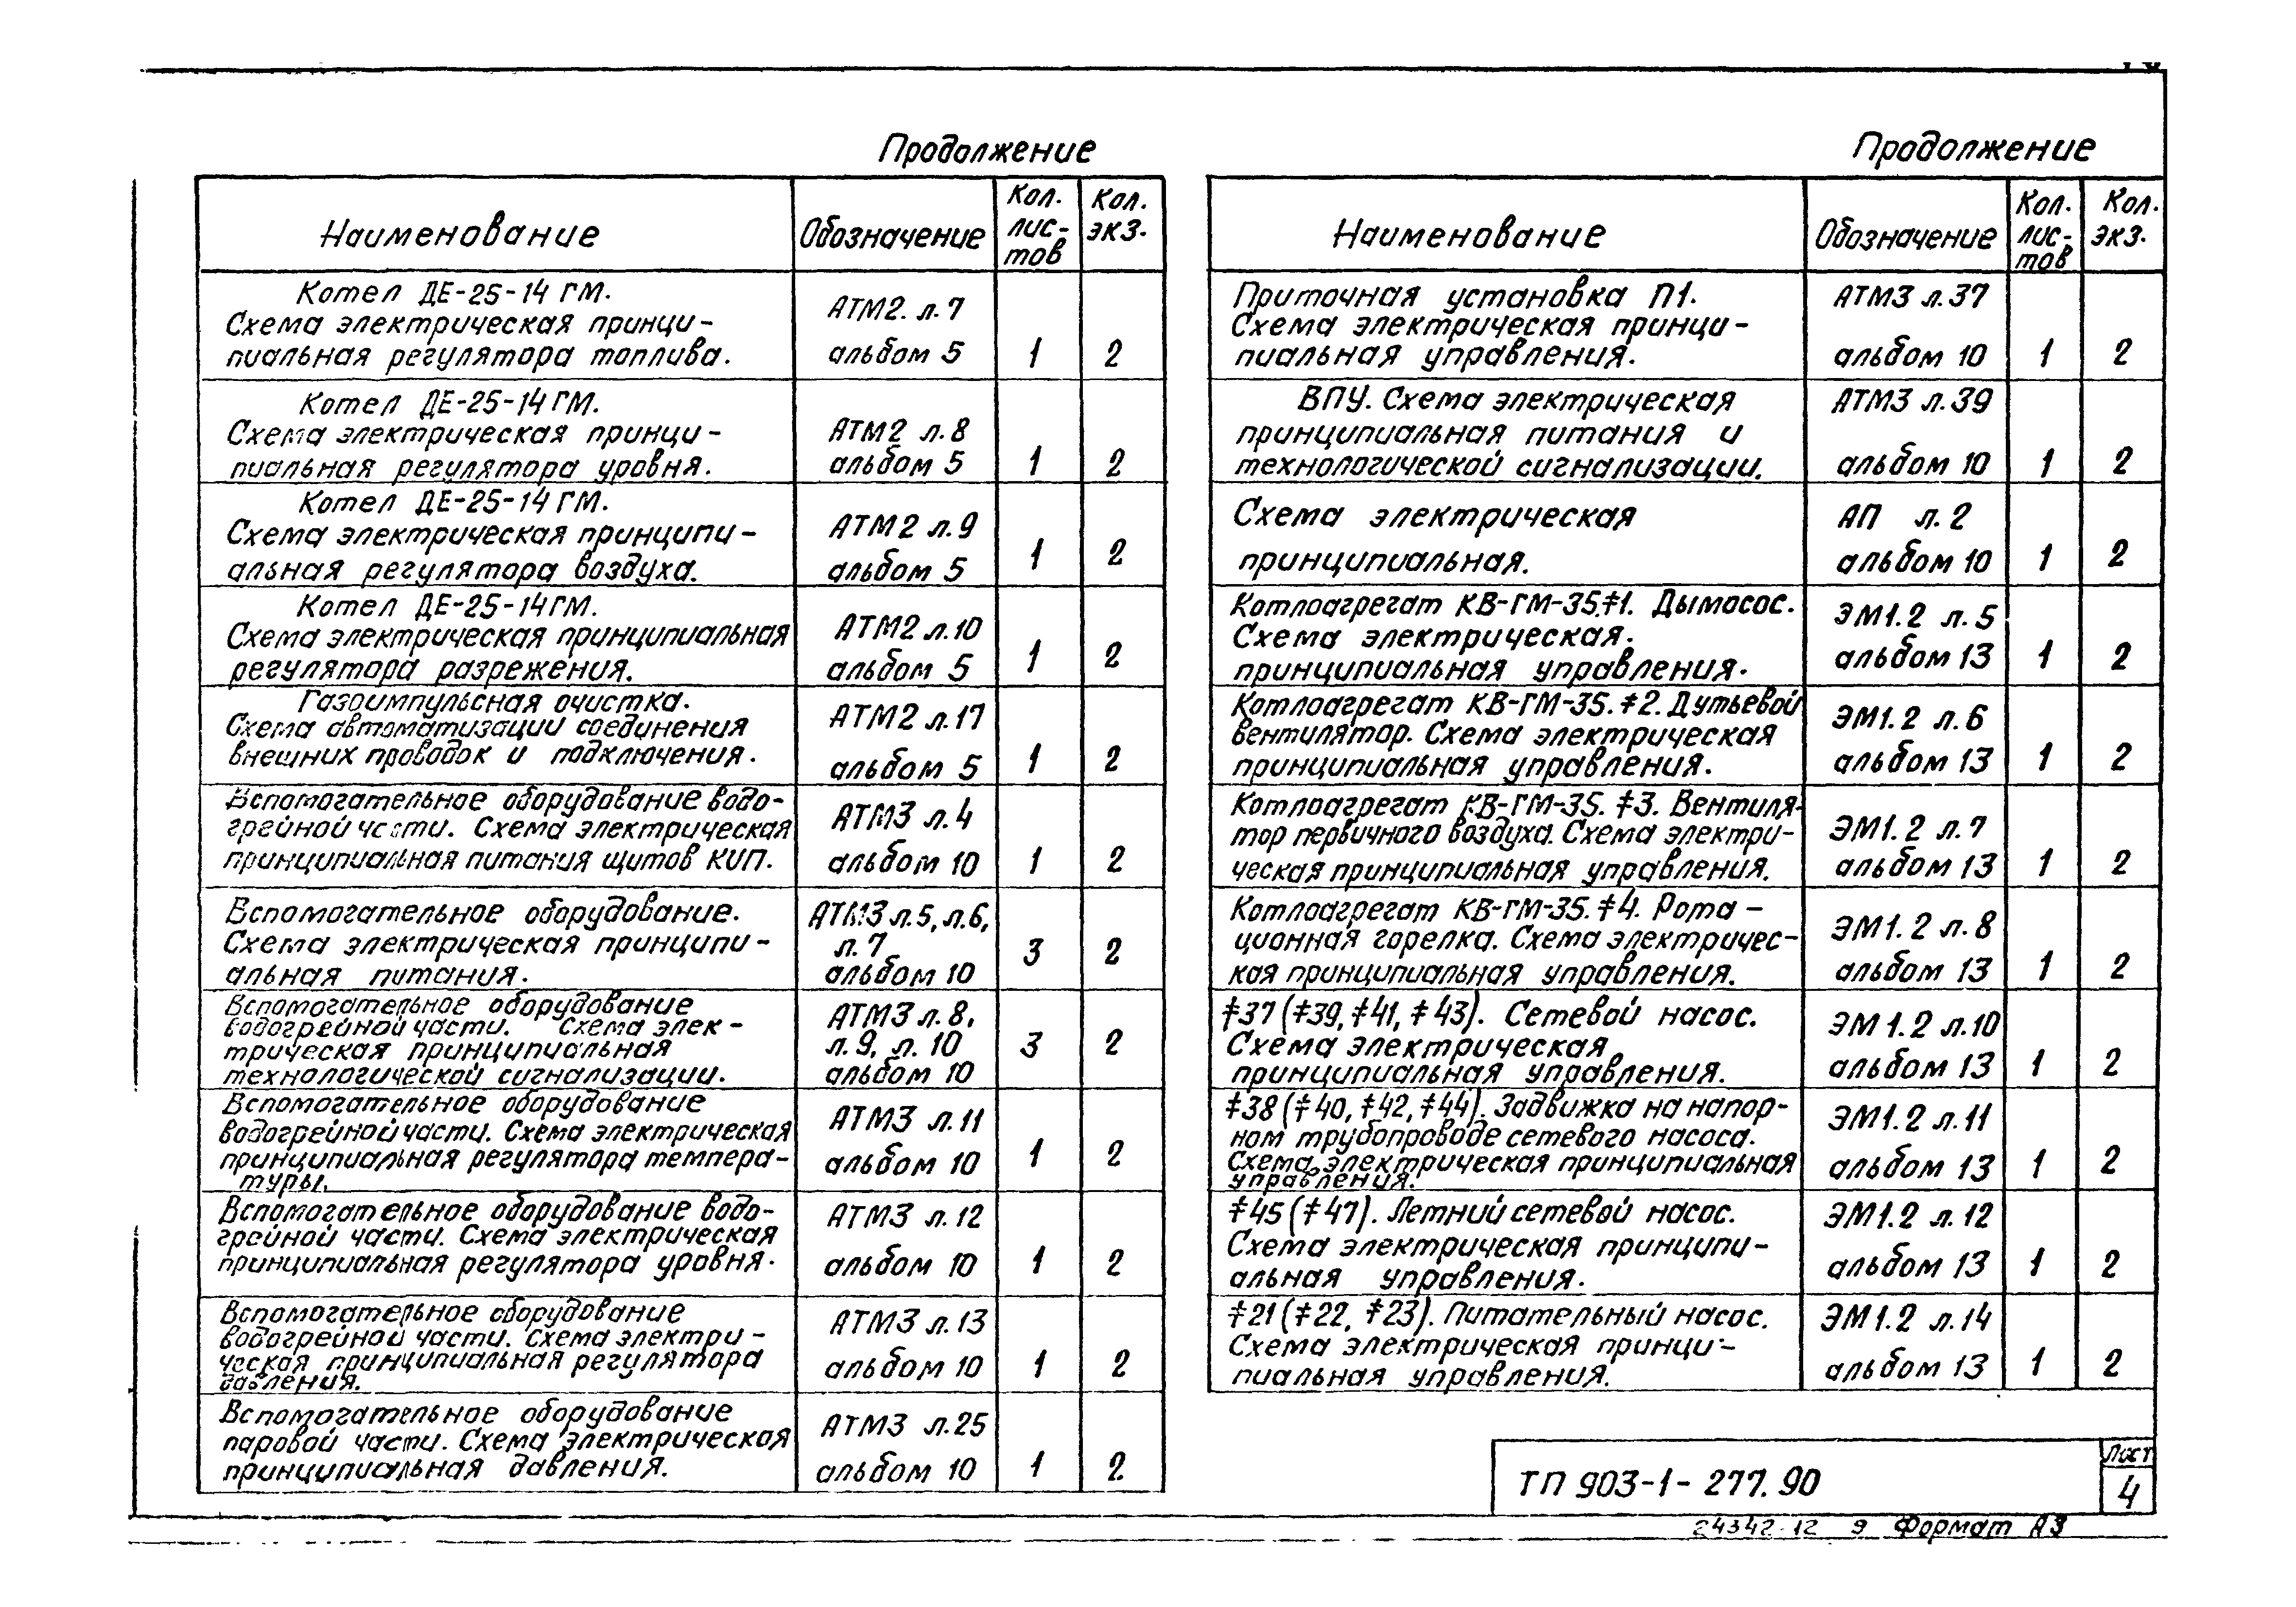 Продолжение
Наименование
Обозначение
Кол.
лис-
тов
Кол.
экз.
Котел ДЕ-25-14 ГМ.
Схема электрическая принци-
пиальная регулятора топлива.
АТМ2. л. 7
альбом 5
1
2
Котел ДЕ-25-14 ГМ.
Схема электрическая принци-
пиальная регулятора уровня.
АТМ2 л. 8
альбом 5
1
2
Котел ДЕ-25-14 ГМ.
Схема электрическая принципи-
альная регулятора воздуха.
АТМ2 л. 9
альбом 5
1
2
Котел ДЕ-25-14ГМ.
Схема электрическая принципиальная
регулятора разрежения.
АТМ2 л. 10
альбом 5
1
2
Газоимпульсная очистка.
Схема автоматизации соединения
внешних проводок и подключения.
АТМ2 л. 17
альбом 5
1
2
Вспомогательное оборудование водо-
грейной части. Схема электрическая
принципиальная питания щитов КИП.
АТМ3 л. 4
альбом 10
1
2
Вспомогательное оборудование.
Схема электрическая принципи-
альная питания.
АТМ3 л. 5, л. 6,
л. 7
альбом 10
3
2
Вспомогательное оборудование
водогрейной части. Схема элек-
трическая принципиальная
технологической сигнализации.
АТМ3 л. 8,
л. 9, л. 10
альбом 10
3
2
Вспомогательное оборудование
водогрейной части. Схема электрическая
принципиальная регулятора темпера-
туры.
АТМ3 л. 11
альбом 10
1
2
Вспомогательное оборудование водо-
грейной части. Схема электрическая
принципиальная регулятора уровня.
АТМ3 л. 12
альбом 10
1
2
Вспомогательное оборудование
водогрейной части. Схема электри-
ческая принципиальная регулятора
давления.
АТМ3 л. 13
альбом 10
1
2
Вспомогательное оборудование
паровой части. Схема электрическая
принципиальная давления.
АТМ3 л. 25
альбом 10
1
2
Продолжение
Наименование
Обозначение
Кол.
лис-
тов
Кол.
экз.
Приточная установка П1.
Схема электрическая принци-
пиальная управления.
АТМ3 л. 37
альбом 10
1
2
ВПУ. Схема электрическая
принципиальная питания и
технологической сигнализации.
АТМ3 л. 39
альбом 10
1
2
Схема электрическая
принципиальная.
АП л. 2
альбом 10
1
2
Котлоагрегат КВ-ГМ-35.‡1. Дымосос.
Схема электрическая.
принципиальная управления.
ЭМ1.2 л. 5
альбом 13
1
2
Котлоагрегат КВ-ГМ-35. ‡2. Дутьевой
вентилятор. Схема электрическая
принципиальная управления.
ЭМ1.2 л. 6
альбом 13
1
2
Котлоагрегат КВ-ГМ-35. ‡3. Вентиля-
тор первичного воздуха. Схема электри-
ческая принципиальная управления.
ЭМ1.2 л. 7
альбом 13
1
2
Котлоагрегат КВ-ГМ-35. ‡4. Рота-
ционная горелка. Схема электричес-
кая принципиальная управления.
ЭМ1.2 л. 8
альбом 13
1
2
‡37 (‡39, ‡41, ‡43). Сетевой насос.
Схема электрическая
принципиальная управления.
ЭМ1.2 л. 10
альбом 13
1
2
‡38 (‡40, ‡42, ‡44). Задвижка на напор-
ном трубопроводе сетевого насоса.
Схема электрическая принципиальная
управления.
ЭМ1.2 л. 11
альбом 13
1
2
‡45 (‡47). Летний сетевой насос.
Схема электрическая принципи-
альная управления.
ЭМ1.2 л. 12
альбом 13
1
2
‡21 (‡22, ‡23). Питательный насос.
Схема электрическая принци-
пиальная управления.
ЭМ1.2 л. 14
альбом 13
1
2
ТП 903-1-277.90
Лист
4
24342-12 9 Формат А3